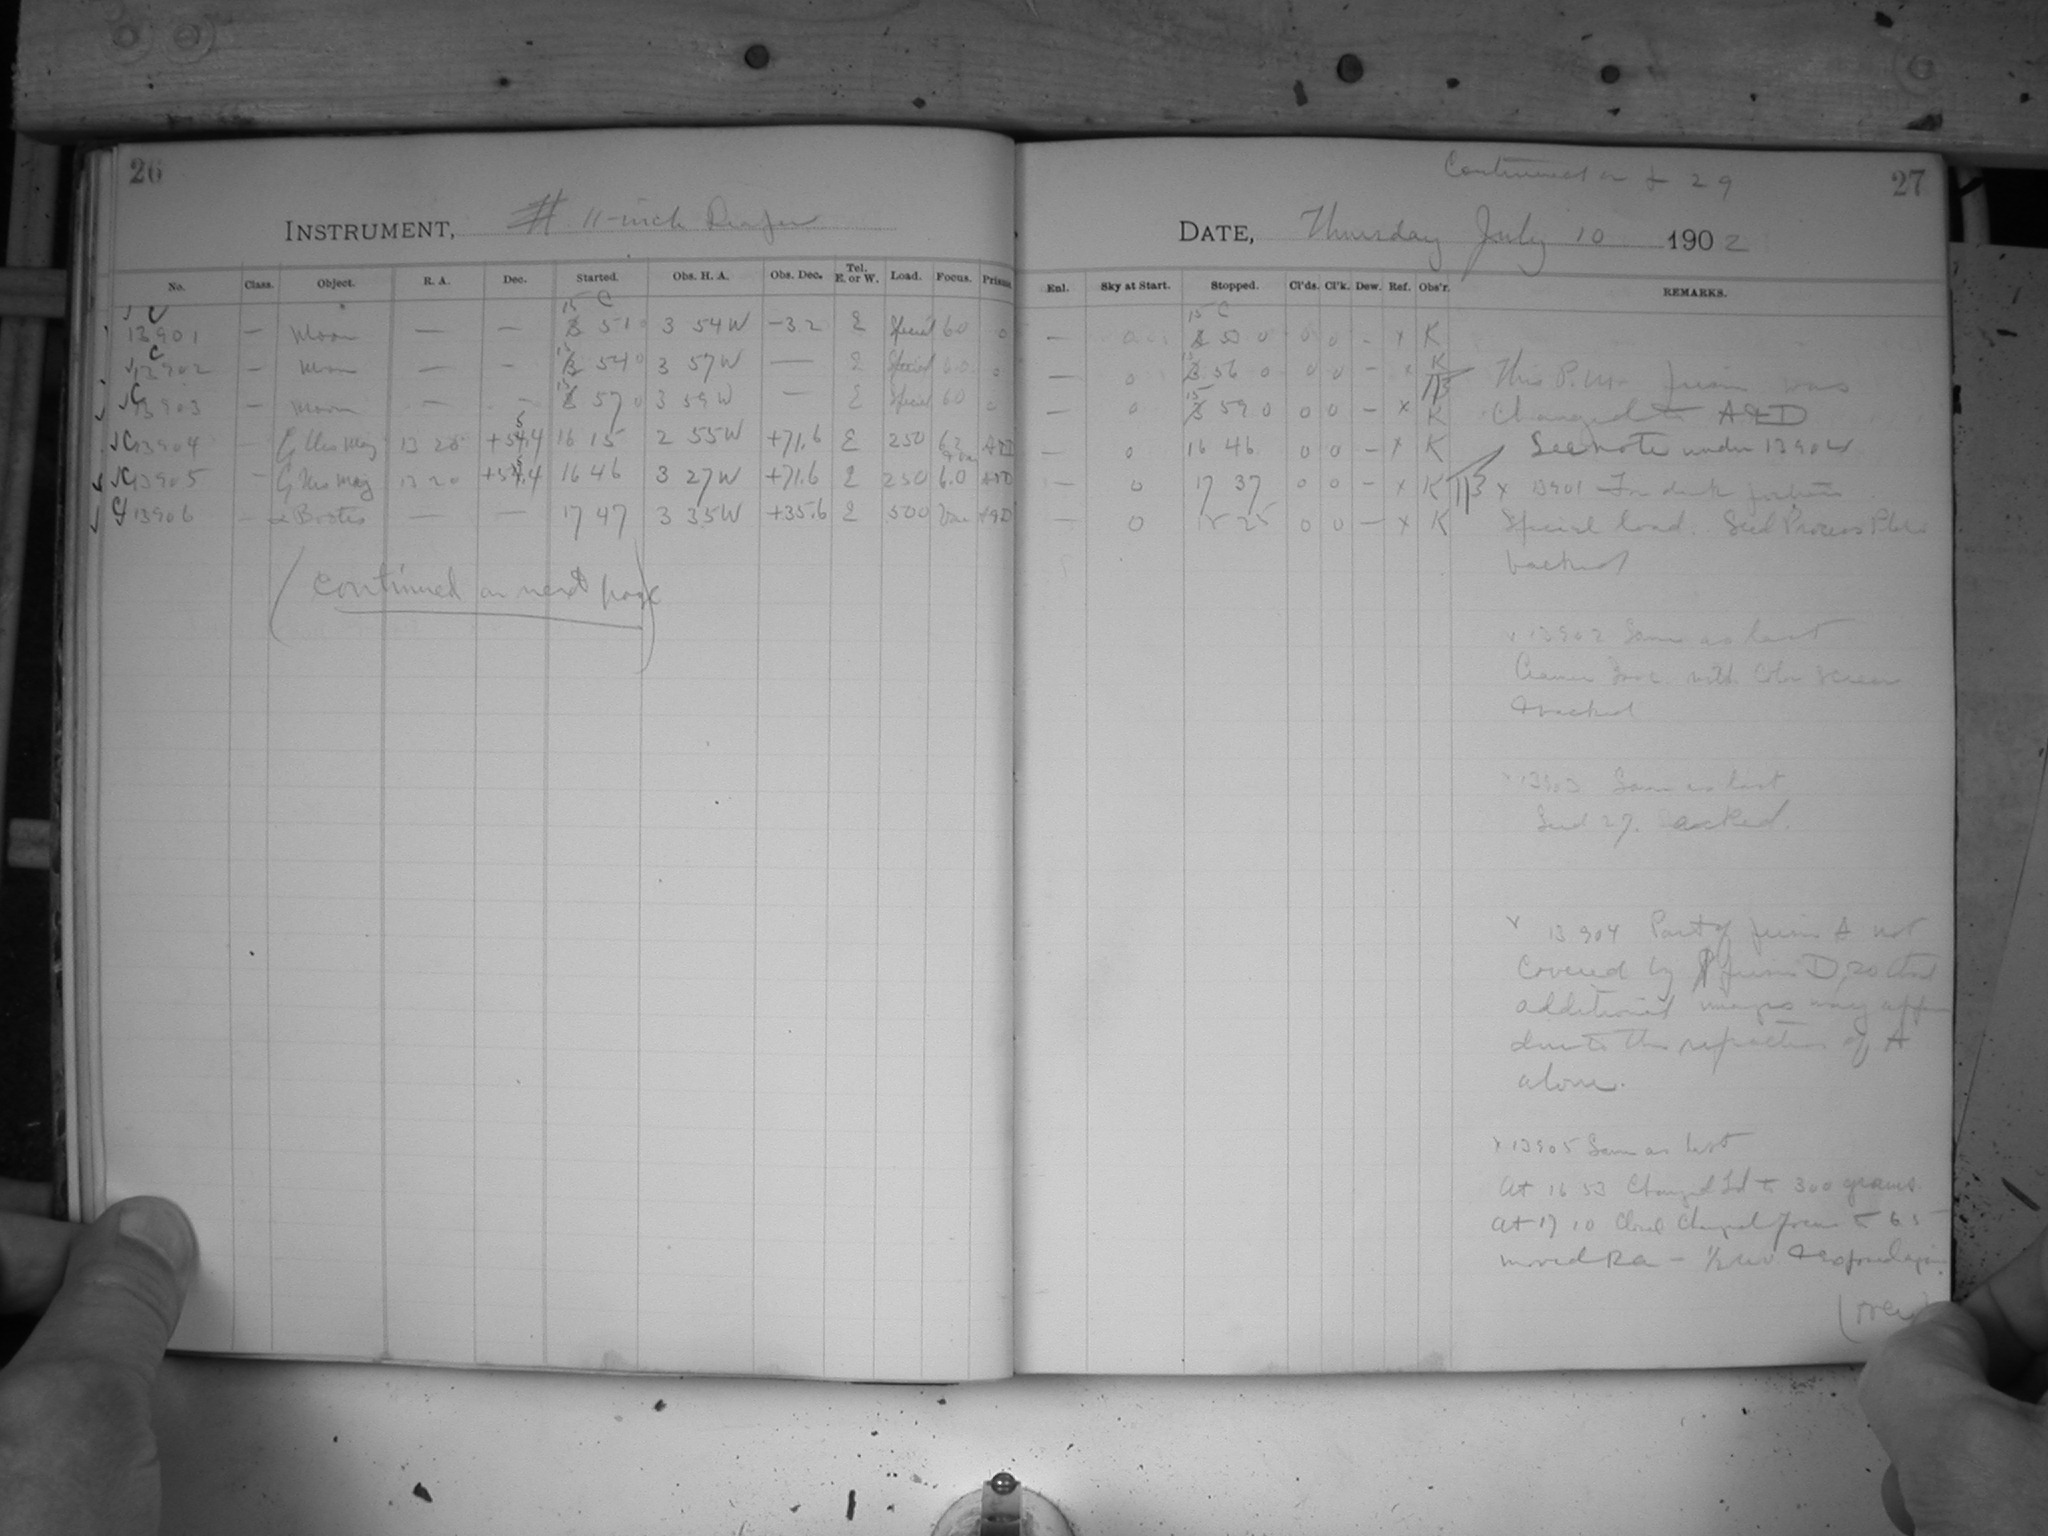 26
INSTRUMENT, 11-inch Draper
No. Class. Object. R. A. Dec. Started. Obs. H. A. Obs. Dec. Tel. E. or W. Load. Focus. Prisms.
15 C
13901 — Moon — — 3 51 0 3 54 W -32 E Special 60 0
13902 — Moon — — 15 3 54 0 3 57 W — E Special 6.0 0
13903 — Moon — — 15 3 57 0 3 59 W — E Special 60 0
13904 — ζ Urs Maj 13 20 +55.4 16 15 2 55 W +71.6 E 250 6.2 A+D
13905 — ζ Urs Maj 13 20 +55.4 16 46 3 27 W +71.6 E 250 6.0 A+D
13906 — α Bootis — — 17 47 3 35 W +35.6 E 500 A+D
(Continued on next page)
Continued on p 29
27
DATE, Thursday July 10 1902
Enl. Sky at Start. Stopped. Cl'ds. Cl'k. Dew. Ref. Obs'r. REMARKS.
15 C
— 0 3 53 0 0 0 — x K
— 0 15 3 56 0 0 0 — x K This P.M. prism was
— 0 15 3 59 0 0 0 — x K Changed to A+D
— 0 16 46 0 0 — x K See note under 13904
— 0 17 37 0 0 — x K x 13901 — For dark
— 0 18 25 0 0 — x K Special load. Seed Process Plate
backed
x 13902 Same as last
Cramer Iso. with Color Screen
+ backed
x 13903 Same as last
Seed 27. backed.
x 13904 Part of prism A not
Covered by prism D, so that
additional images may appear
due to the refraction of A
alone.
x 13905 Same as last
At 16 53 Changed Ld to 300 grams.
At 17 10 Closed Changed focus to 6.5
moved RA — 1/2 rev + exposed again.
(over)